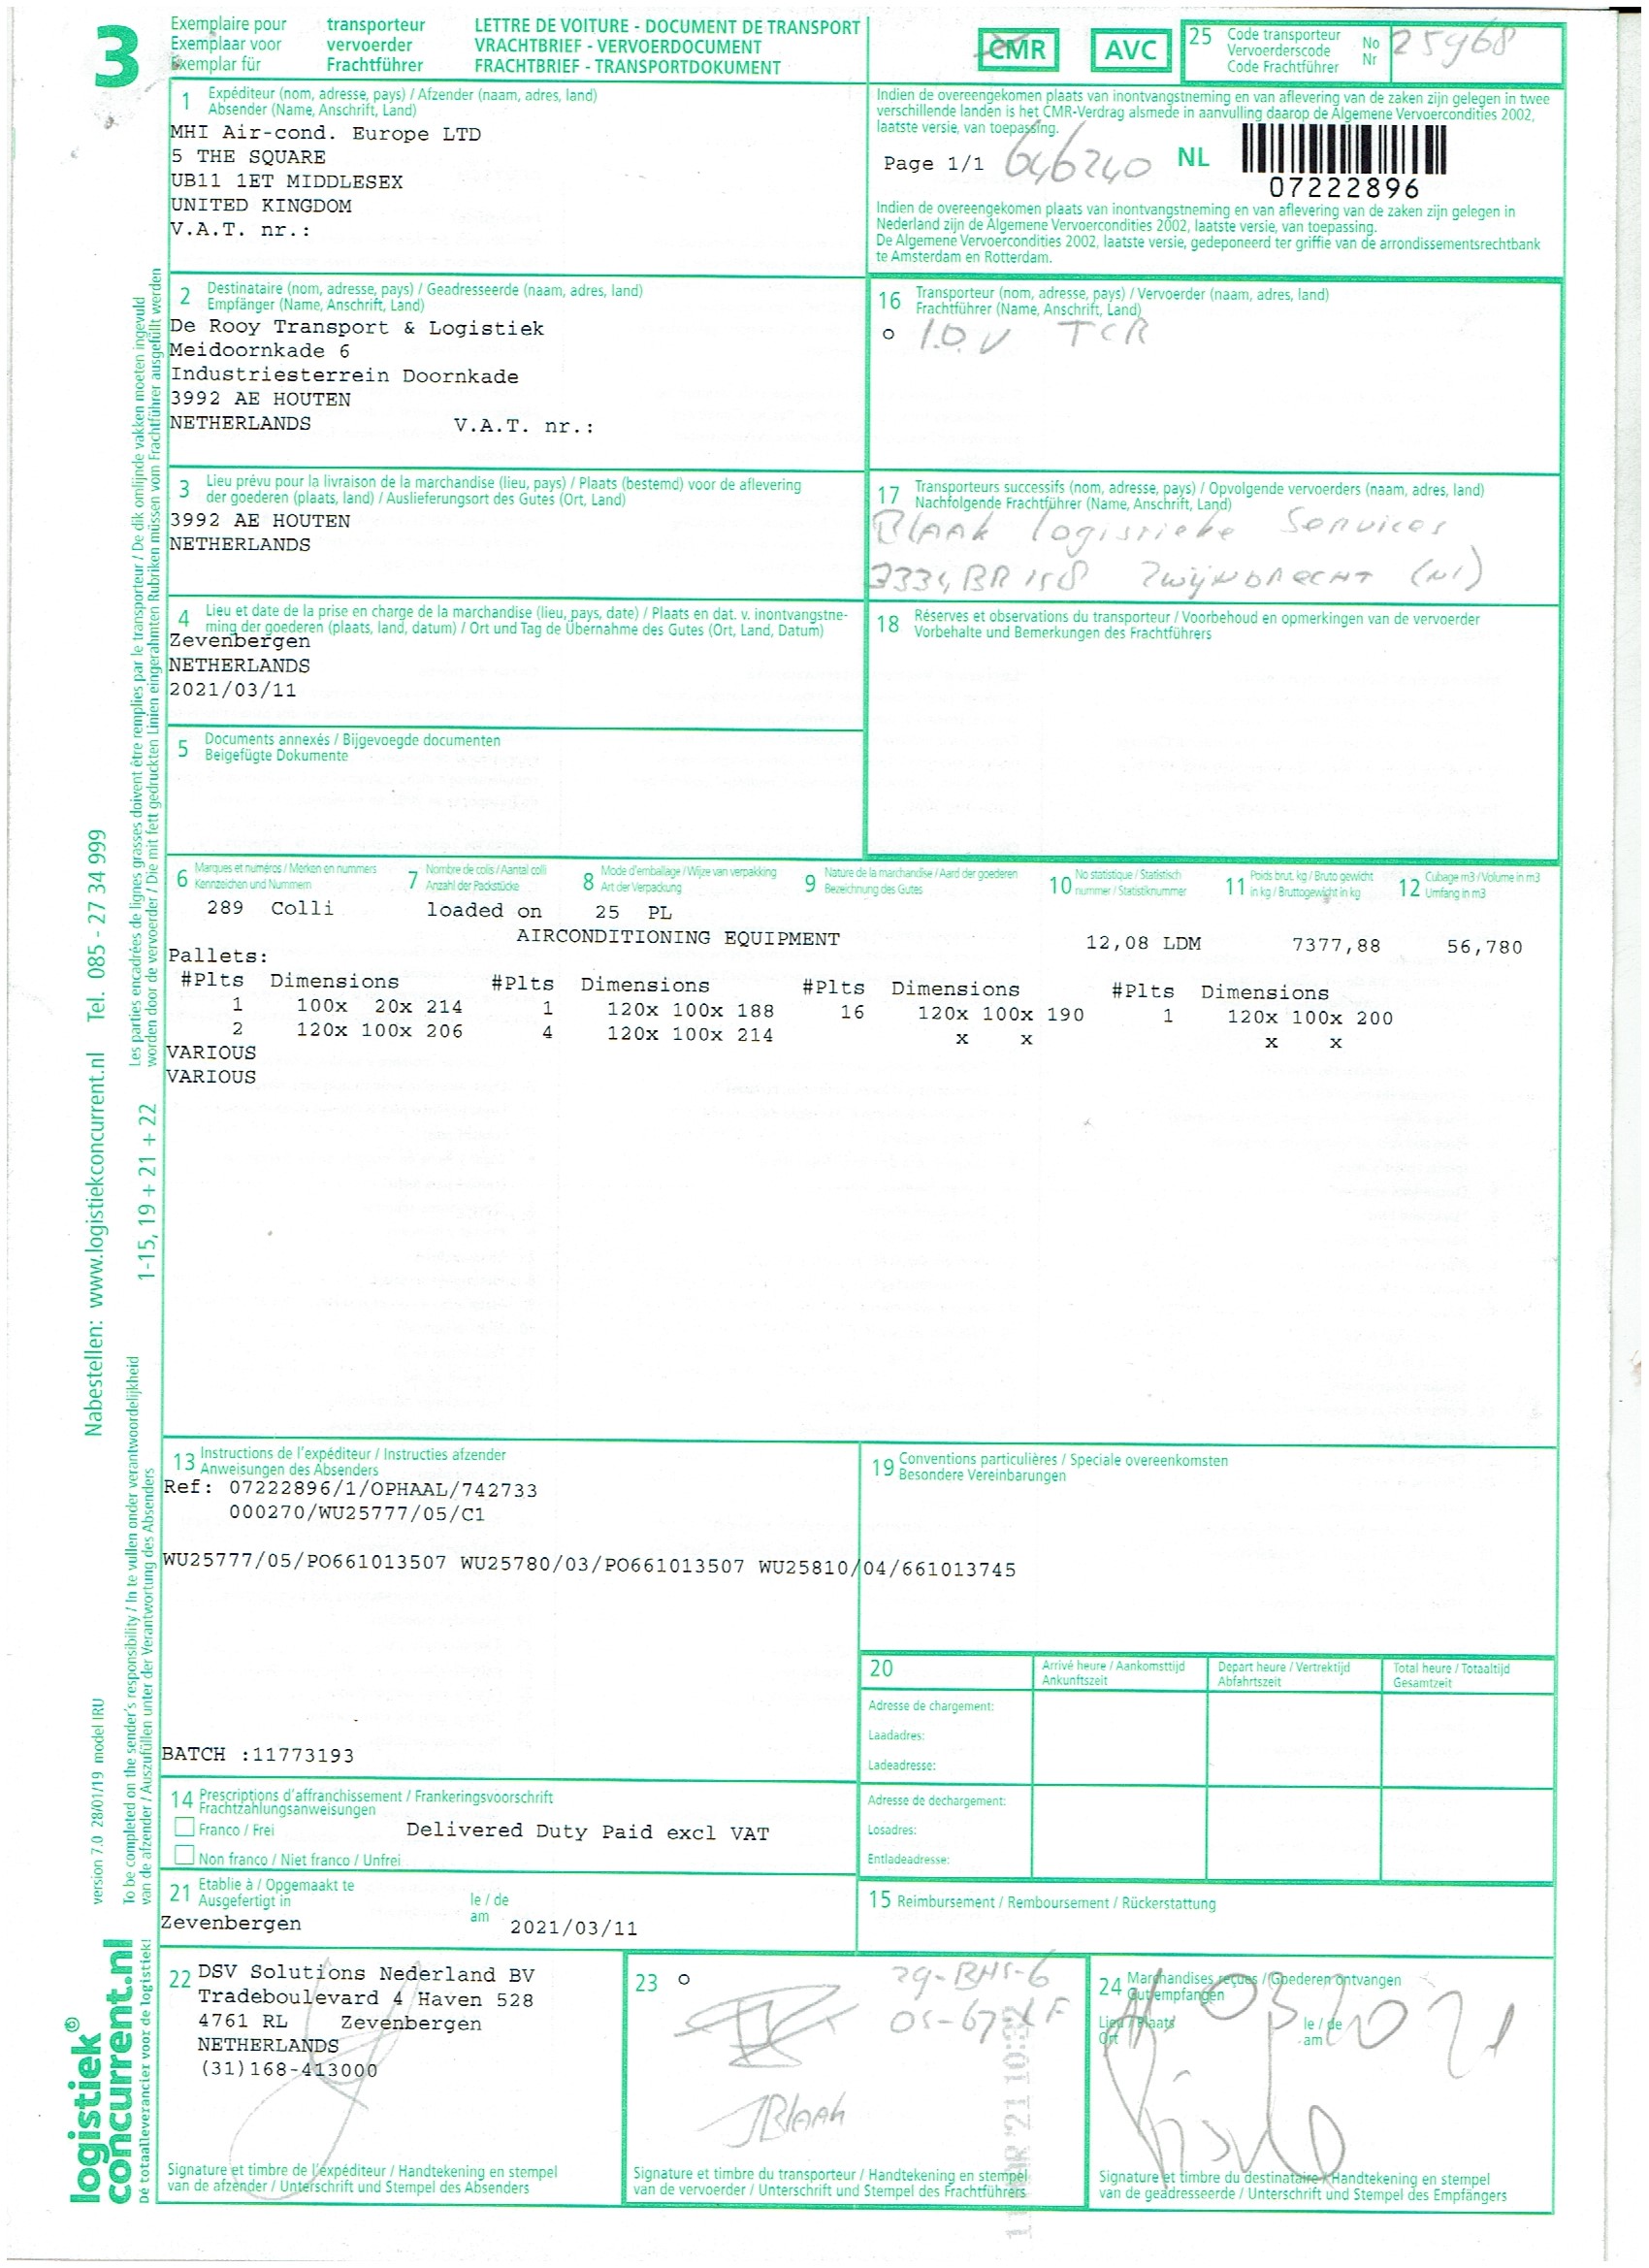 3
Exemplaire pour transporteur
Exemplaar voor vervoerder
Exemplar für Frachtführer
LETTRE DE VOITURE - DOCUMENT DE TRANSPORT
VRACHTBRIEF - VERVOERDOCUMENT
FRACHTBRIEF - TRANSPORTDOKUMENT
CMR
AVC
25 Code transporteur
Vervoerderscode
Code Frachtführer
No
Nr
25968
1 Expéditeur (nom, adresse, pays) / Afzender (naam, adres, land)
Absender (Name, Anschrift, Land)
MHI Air-cond. Europe LTD
5 THE SQUARE
UB11 1ET MIDDLESEX
UNITED KINGDOM
V.A.T. nr.:
Indien de overeengekomen plaats van inontvangstneming en van aflevering van de zaken zijn gelegen in twee
verschillende landen is het CMR-Verdrag alsmede in aanvulling daarop de Algemene Vervoercondities 2002,
laatste versie, van toepassing.
Page 1/1 646240 NL
07222896
Indien de overeengekomen plaats van inontvangstneming en van aflevering van de zaken zijn gelegen in
Nederland zijn de Algemene Vervoercondities 2002, laatste versie, van toepassing.
De Algemene Vervoercondities 2002, laatste versie, gedeponeerd ter griffie van de arrondissementsrechtbank
te Amsterdam en Rotterdam.
2 Destinataire (nom, adresse, pays) / Geadresseerde (naam, adres, land)
Empfänger (Name, Anschrift, Land)
De Rooy Transport & Logistiek
Meidoornkade 6
Industriesterrein Doornkade
3992 AE HOUTEN
NETHERLANDS V.A.T. nr.:
16 Transporteur (nom, adresse, pays) / Vervoerder (naam, adres, land)
Frachtführer (Name, Anschrift, Land)
o I.O.V TCR
3 Lieu prévu pour la livraison de la marchandise (lieu, pays) / Plaats (bestemd) voor de aflevering
der goederen (plaats, land) / Auslieferungsort des Gutes (Ort, Land)
3992 AE HOUTEN
NETHERLANDS
17 Transporteurs successifs (nom, adresse, pays) / Opvolgende vervoerders (naam, adres, land)
Nachfolgende Frachtführer (Name, Anschrift, Land)
Blaak logistieke Services
3334 BR 158 Zwijndrecht (NL)
4 Lieu et date de la prise en charge de la marchandise (lieu, pays, date) / Plaats en dat. v. inontvangstne-
ming der goederen (plaats, land, datum) / Ort und Tag de Übernahme des Gutes (Ort, Land, Datum)
Zevenbergen
NETHERLANDS
2021/03/11
18 Réserves et observations du transporteur / Voorbehoud en opmerkingen van de vervoerder
Vorbehalte und Bemerkungen des Frachtführers
5 Documents annexés / Bijgevoegde documenten
Beigefügte Dokumente
6 Marques et numéros / Merken en nummers
Kennzeichen und Nummern
7 Nombre de colis / Aantal colli
Anzahl der Packstücke
8 Mode d'emballage / Wijze van verpakking
Art der Verpackung
9 Nature de la marchandise / Aard der goederen
Bezeichnung des Gutes
10 No statistique / Statistisch
nummer / Statistiknummer
11 Poids brut, kg / Bruto gewicht
in kg / Bruttogewicht in kg
12 Cubage m3 / Volume in m3
Umfang in m3
289 Colli loaded on 25 PL
AIRCONDITIONING EQUIPMENT 12,08 LDM 7377,88 56,780
Pallets:
#Plts Dimensions #Plts Dimensions #Plts Dimensions #Plts Dimensions
1 100x 20x 214 1 120x 100x 188 16 120x 100x 190 1 120x 100x 200
2 120x 100x 206 4 120x 100x 214 x x x x
VARIOUS
VARIOUS
13 Instructions de l'expéditeur / Instructies afzender
Anweisungen des Absenders
Ref: 07222896/1/OPHAAL/742733
000270/WU25777/05/C1
WU25777/05/PO661013507 WU25780/03/PO661013507 WU25810/04/661013745
BATCH :11773193
19 Conventions particulières / Speciale overeenkomsten
Besondere Vereinbarungen
20
Arrivé heure / Aankomsttijd
Ankunftszeit
Depart heure / Vertrektijd
Abfahrtszeit
Total heure / Totaaltijd
Gesamtzeit
Adresse de chargement:
Laadadres:
Ladeadresse:
Adresse de dechargement:
Losadres:
Entladeadresse:
14 Prescriptions d'affranchissement / Frankeringsvoorschrift
Frachtzahlungsanweisungen
Franco / Frei
Delivered Duty Paid excl VAT
Non franco / Niet franco / Unfrei
21 Etablie à / Opgemaakt te
Ausgefertigt in
le / de
am
Zevenbergen 2021/03/11
15 Reimbursement / Remboursement / Rückerstattung
22 DSV Solutions Nederland BV
Tradeboulevard 4 Haven 528
4761 RL Zevenbergen
NETHERLANDS
(31)168-413000
Signature et timbre de l'expéditeur / Handtekening en stempel
van de afzender / Unterschrift und Stempel des Absenders
23 o
29-BHS-6
JBlaak
Signature et timbre du transporteur / Handtekening en stempel
van de vervoerder / Unterschrift und Stempel des Frachtführers
24 Marchandises reçues / Goederen ontvangen
Gut empfangen
Lieu / Plaats
Ort
le / de
am
11 03 2021
Signature et timbre du destinataire / Handtekening en stempel
van de geadresseerde / Unterschrift und Stempel des Empfängers
Les parties encadrées de lignes grasses doivent être remplies par le transporteur / De dik omlijnde vakken moeten ingevuld
worden door de vervoerder / Die mit fett gedruckten Linien eingerahmten Rubriken müssen vom Frachtführer ausgefüllt werden
Nabestellen: www.logistiekconcurrent.nl Tel. 085 - 27 34 999
1-15, 19 + 21 + 22
To be completed on the sender's responsibility / In te vullen onder verantwoordelijkheid
van de afzender / Auszufüllen unter der Verantwortung des Absenders
version 7.0 28/01/19 model IRU
logistiek®
concurrent.nl
Dé totaalleverancier voor de logistiek!